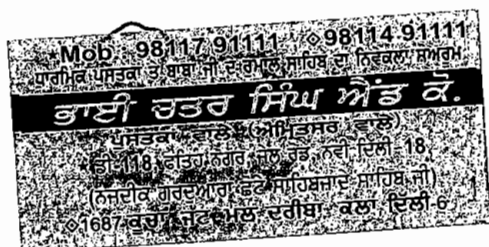 Mob 98117 91111 98114 91111
ਧਾਰਮਿਕ ਪੁਸਤਕਾਂ ਤੇ ਬਾਬਾ ਜੀ ਦੇ ਰੁਮਾਲਾ ਸਾਹਿਬ ਦਾ ਨਿਵੇਕਲਾ ਸ਼ੋਅਰੂਮ
ਭਾਈ ਚਤਰ ਸਿੰਘ ਐਂਡ ਕੋ.
ਪੁਸਤਕਾਂ ਵਾਲੇ (ਅੰਮ੍ਰਿਤਸਰ ਵਾਲੇ)
ਡੀ-118, ਫਤਿਹ ਨਗਰ, ਜੇਲ੍ਹ ਰੋਡ, ਨਵੀਂ ਦਿੱਲੀ-18
(ਨਜ਼ਦੀਕ ਗੁਰਦੁਆਰਾ ਛੋਟੇ ਸਾਹਿਬਜ਼ਾਦੇ ਸਾਹਿਬ ਜੀ)
1687-ਕੂਚਾ ਜਟਮਲ ਦਰੀਬਾ ਕਲਾਂ ਦਿੱਲੀ-6